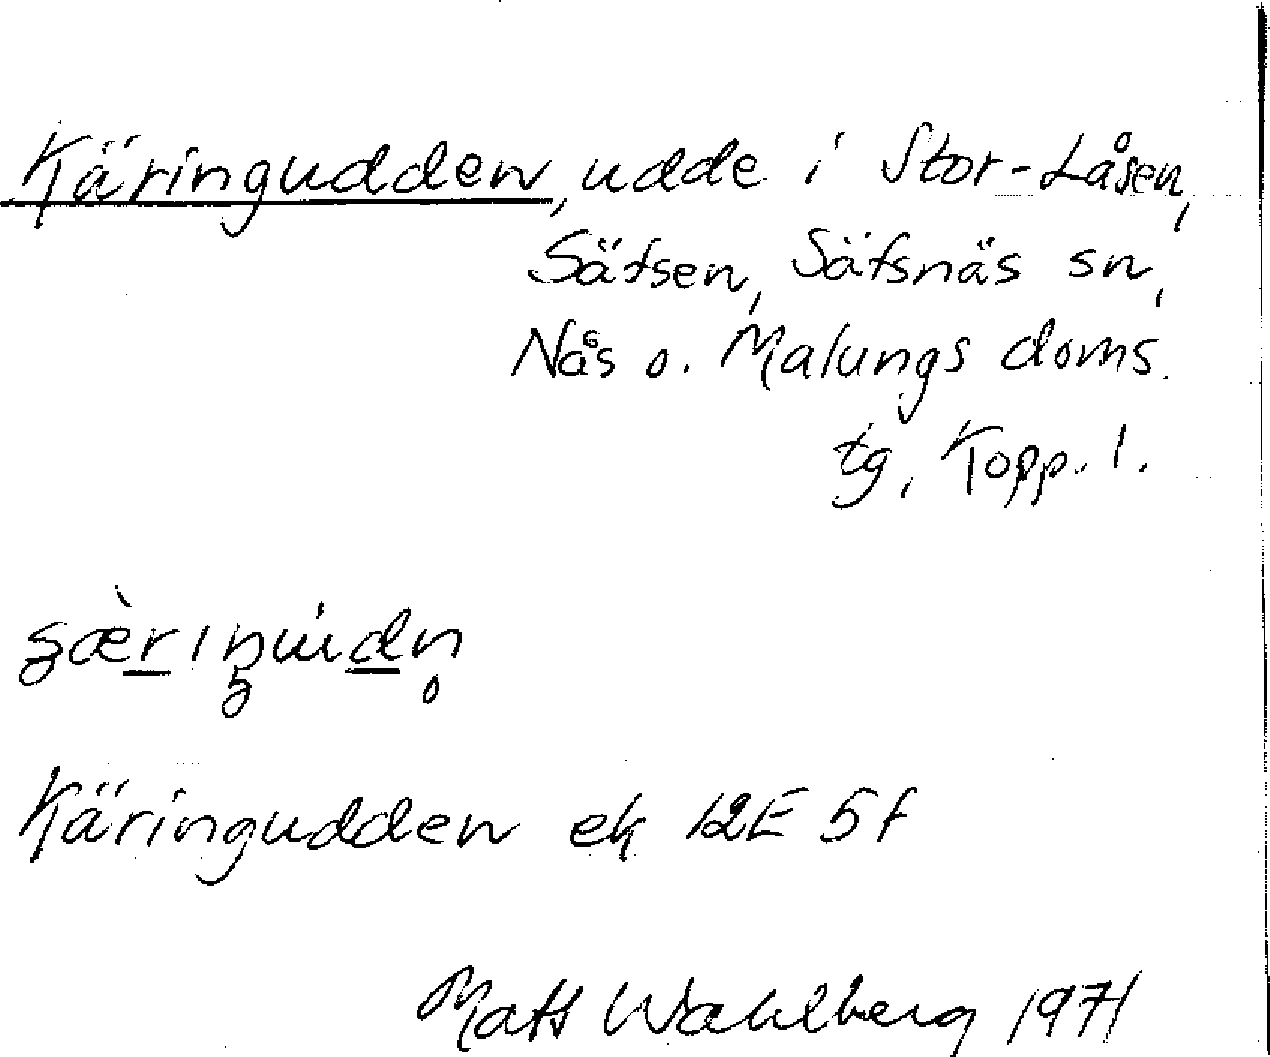 Käringudden, udde i Stor-Låsen,
Säfsen, Säfsnäs sn,
Nås o. Malungs doms.
tg, Kopp. l.
Käringudden ek 12E 5f
Mats Wahlberg 1971